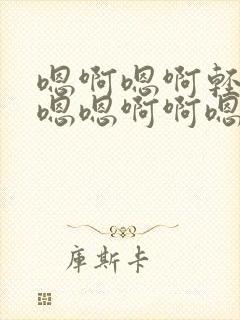 嗯啊嗯啊軽
嗯嗯啊啊嗯
庫斯卡